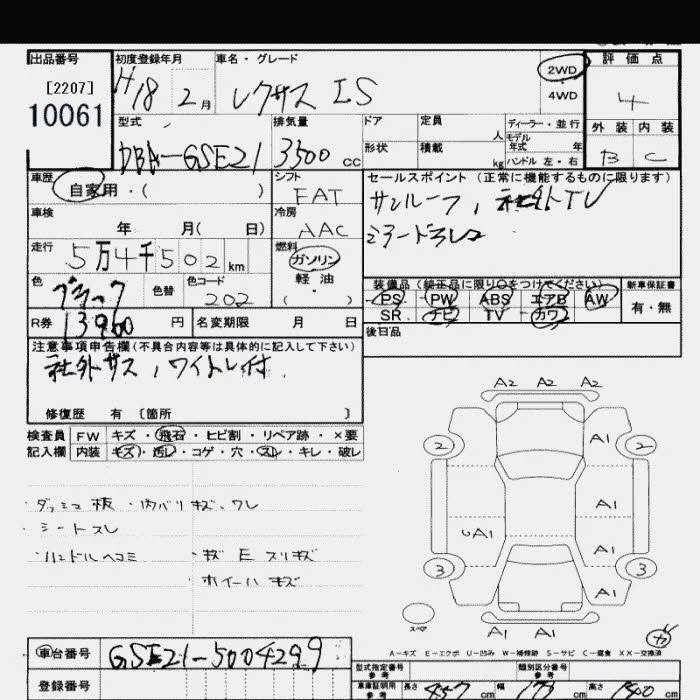 出品番号 初度登録年月 車名・グレード 2WD 評価点
[2207] H18 2月 レクサス IS 4WD 4
10061 外装 内装
型式 排気量 ドア 定員 人 ディーラー・並行 B C
DBA-GSE21 3500cc 形状 積載 kg モデル年式 年 ハンドル 左・右
車歴 シフト セールスポイント (正常に機能するものに限ります)
自家用・( ) FAT サンルーフ, 社外TV
車検 冷房
年 月( 日) AAC
走行 燃料
5万4千502km ガソリン
色 色替 色コード 軽油 装備品 (純正品に限り〇をつけてください) 新車保証書
ブラック 202 ・( ) PS PW ABS エアB AW 有・無
SR ナビ TV カワ
R券 13960円 名変期限 月 日 後日品
注意事項申告欄(不具合内容等は具体的に記入して下さい)
社外サス,
修復歴 有 〔箇所 〕
検査員 FW キズ・飛石・ヒビ割・リペア跡・×要
記入欄 内装 キズ・汚レ・コゲ・穴・スレ・キレ・破レ
・内バリキズ、ワレ
・シートスレ
・ハンドルヘコミ
ホイールキズ
A2 A2 A2
2 A1 2
A1
A1
A1
3 3
A1
A1 A1
スペア
A-キズ E-エクボ U-凹み W-補修跡 S-サビ C-腐食 XX-交換済
車台番号 GSE21-5004299
登録番号
型式指定番号 参考 類別区分番号 参考
車庫証明用 参考 長さ 457cm 幅 cm 高さ cm